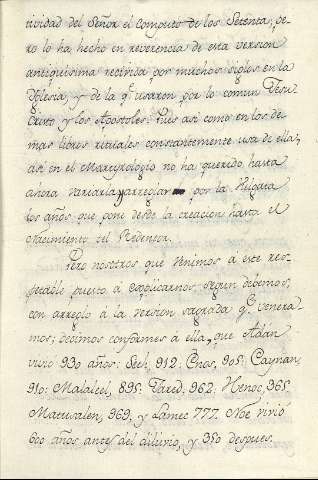 tividad del Señor el computo de los Setenta; pe-
ro lo ha hecho en reverencia de esta version
antiquisima recivida por muchos siglos en la
Yglesia, y de la q.e usaron por lo comun Jesu-
Cristo y los Apostoles. Pues asi como en los de-
mas libros rituales constantemente usa de ella,
asi en el Martyrologio no ha querido hasta
ahora variarla, y arreglar por la Vulgata
los años que pone desde la creacion hasta el
Nacimiento del Redentor.
Pero nosotros que venimos á este res-
petable puesto á explicarnos segun debemos,
con arreglo á la version sagrada q.e venera-
mos; decimos conformes á ella, que Adan
vivio 930 años: Seth, 912: Enos, 905: Caynan,
910: Malaleel, 895: Jared, 962: Henoc, 365:
Matusalen, 969, y Lamec 777. Noe vivió
600 años antes del dilúvio, y 350 despues.